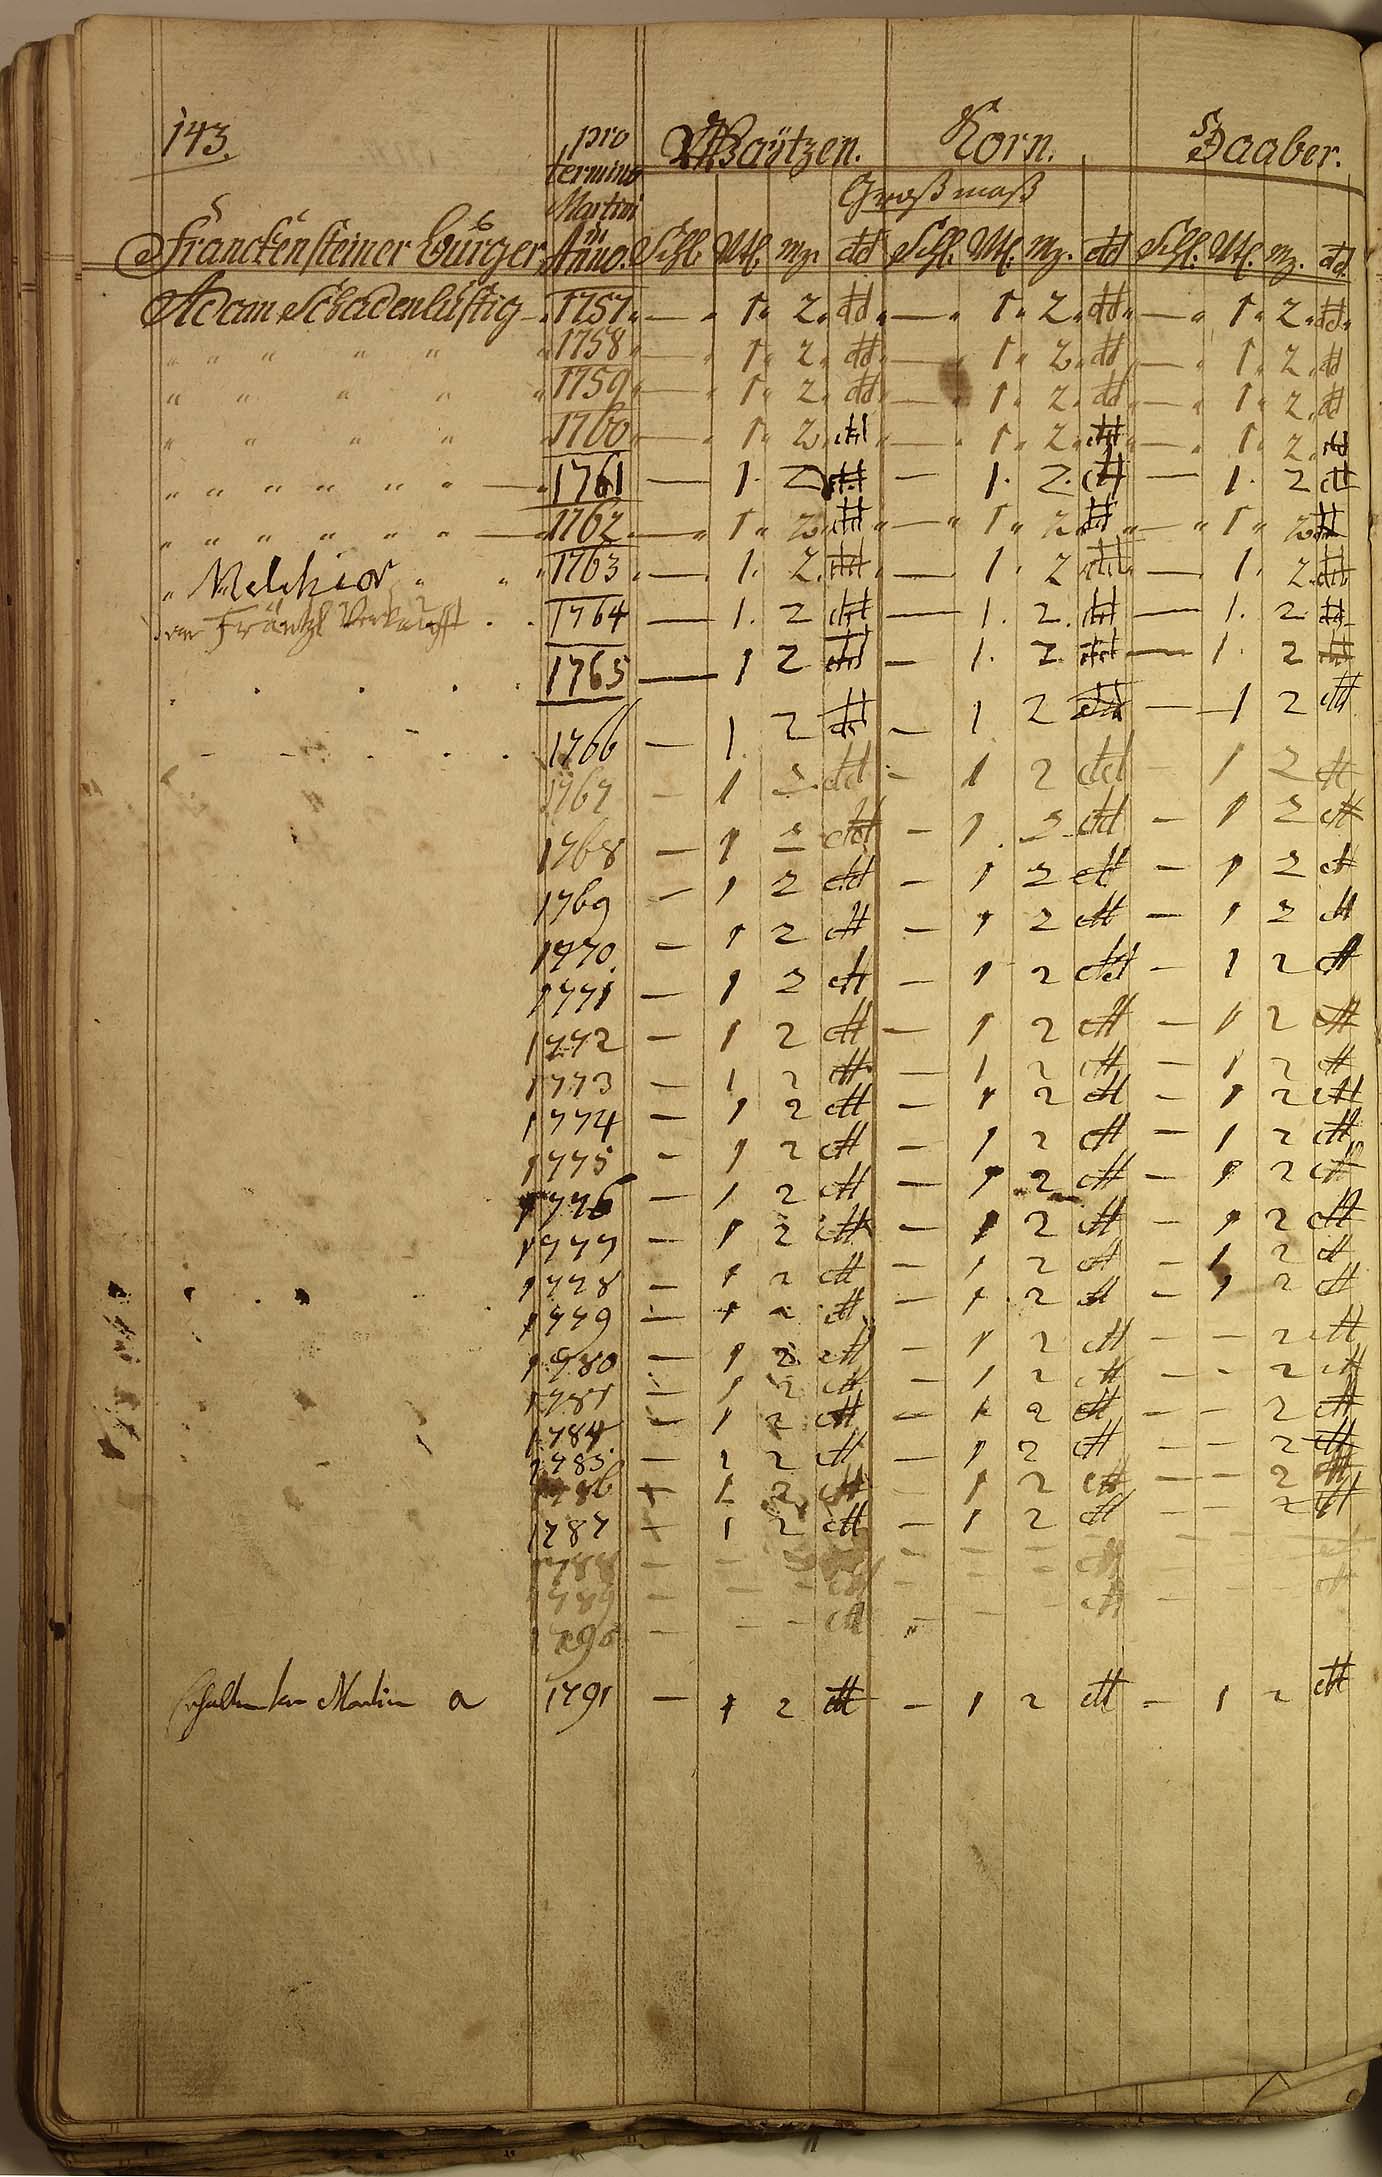 143.
pro termino Martini in Anno.
Waÿtzen. Korn. Haaber.
Großmaß
Franckensteiner bürger Schl. Vtl. mz. dd Schl. Vtl. Mz. dd Schl. Vtl. mz. dd
Adam Schadenlustig 1757 — 1 2 dd — 1 2 dd — 1 2 dd
" " " " " 1758 — 1 2 dd — 1 2 dd — 1 2 dd
" " " " " 1759 — 1 2 dd — 1 2 dd — 1 2 dd
" " " " 1760 — 1 2 dd — 1 2 dd — 1 2 dd
" " " " " " — 1761 — 1. 2 dd — 1. 2. dd — 1. 2 dd
" " " " " " — 1762 — 1 2 dd — 1 2 dd — 1 2 dd
" Melchior " " 1763 — 1. 2. dd — 1. 2 dd — 1. 2. dd
Fräntzl Verkaufft 1764 — 1. 2 dd — 1. 2. dd — 1. 2 dd
1765 — 1 2 dd — 1. 2. dd — 1. 2 dd
1766 — 1 2 dd — 1 2 dd — 1 2 dd
1767 — 1 2 dd — 1 2 dd — 1 2 dd
1768 — 1 2 dd — 1 2 dd — 1 2 dd
1769 — 1 2 dd — 1 2 dd — 1 2 dd
1770 — 1 2 dd — 1 2 dd — 1 2 dd
1771 — 1 2 dd — 1 2 dd — 1 2 dd
1772 — 1 2 dd — 1 2 dd — 1 2 dd
1773 — 1 2 dd — 1 2 dd — 1 2 dd
1774 — 1 2 dd — 1 2 dd — 1 2 dd
1775 — 1 2 dd — 1 2 dd — 1 2 dd
1776 — 1 2 dd — 1 2 dd — 1 2 dd
1777 — 1 2 dd — 1 2 dd — 1 2 dd
1778 — 1 2 dd — 1 2 dd — 1 2 dd
1779 — 1 2 dd — 1 2 dd — 1 2 dd
1780 — 1 2 dd — 1 2 dd — — 2 dd
1781 — 1 2 dd — 1 2 dd — — 2 dd
1784 — 1 2 dd — 1 2 dd — — 2 dd
1785 — 1 2 dd — 1 2 dd — — 2 dd
1786 — 1 2 dd — 1 2 dd — — 2 dd
1787 — 1 2 dd — 1 2 dd — — 2 dd
1788 — — — dd — — — dd — — — dd
1789 — — — dd — — — dd — dd
1790 — — — dd "
Martin a 1791 — 1 2 dd — 1 2 dd — 1 2 dd